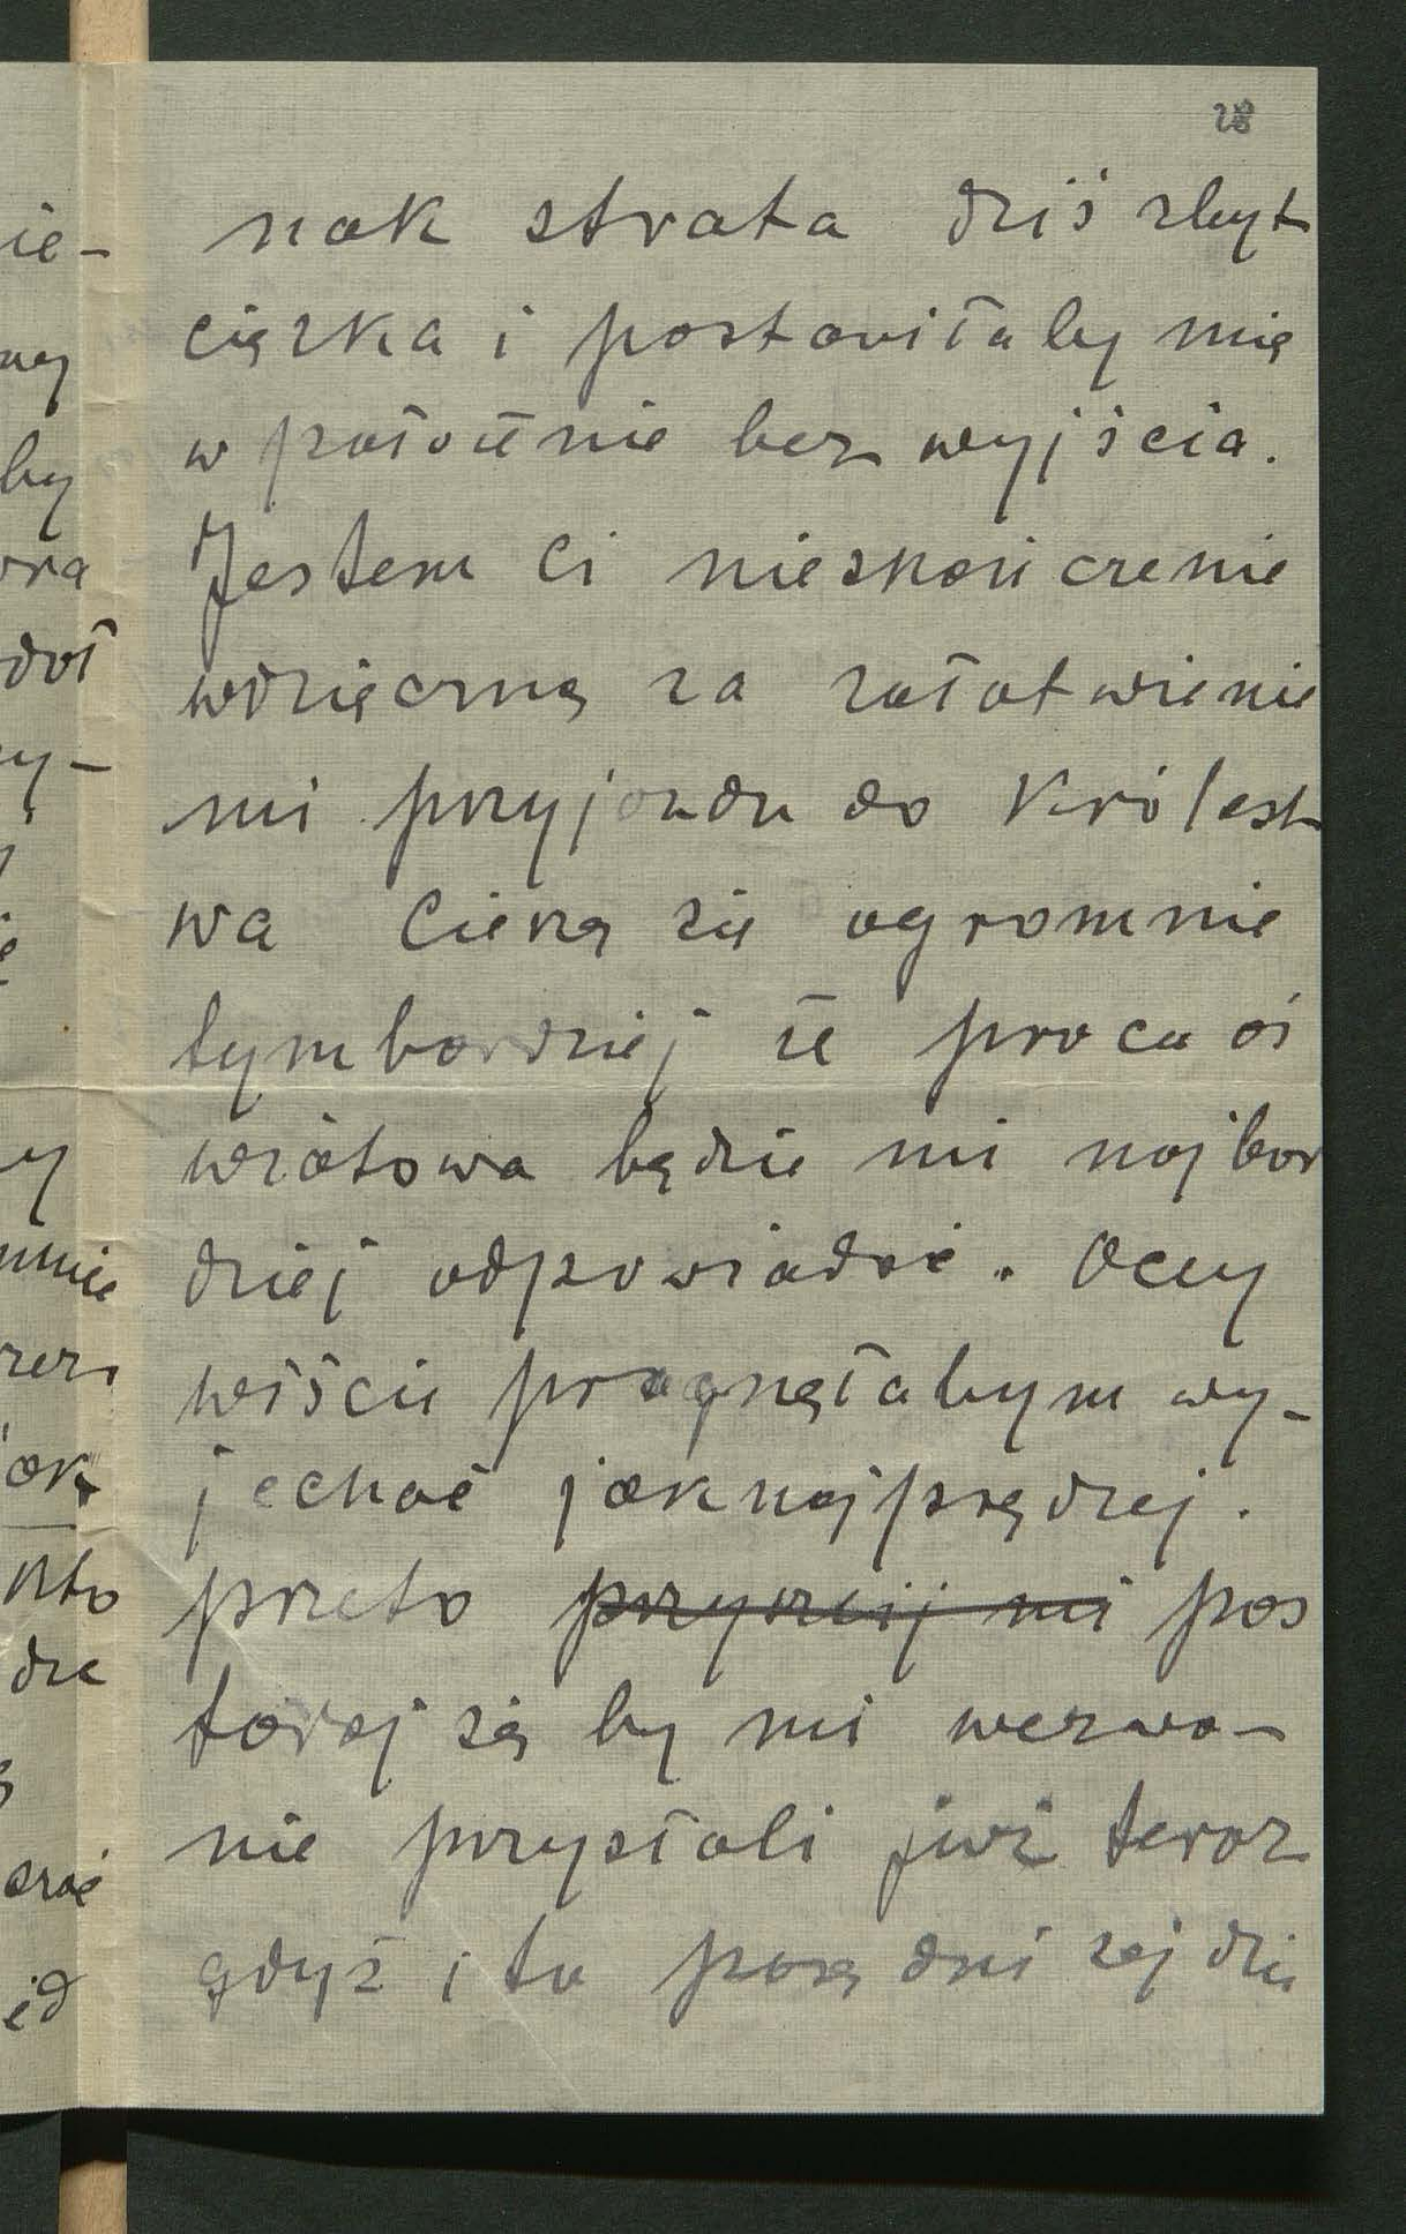 28
nak strata dziś zbyt
ciężka i postawiłaby mię
w położenie bez wyjścia.
Jestem Ci nieskończenie
wdzięczną za załatwienie
mi przyjazdu do Królest
wa Cieszę się ogromnie
tymbardziej że praca oś
wiatowa będzie mi najbar
dziej odpowiadać. Oczy
wiście pragnęłabym wy-
jechać jaknajprędzej.
przeto pos
taraj się by mi wezwa-
nie przysłali już teraz
gdyż i tu parę dni zejdzie